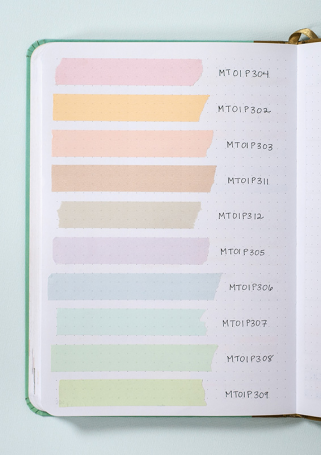 MT01P304
MT01P302
MT01P303
MT01P311
MT01P312
MT01P305
MT01P306
MT01P307
MT01P308
MT01P309